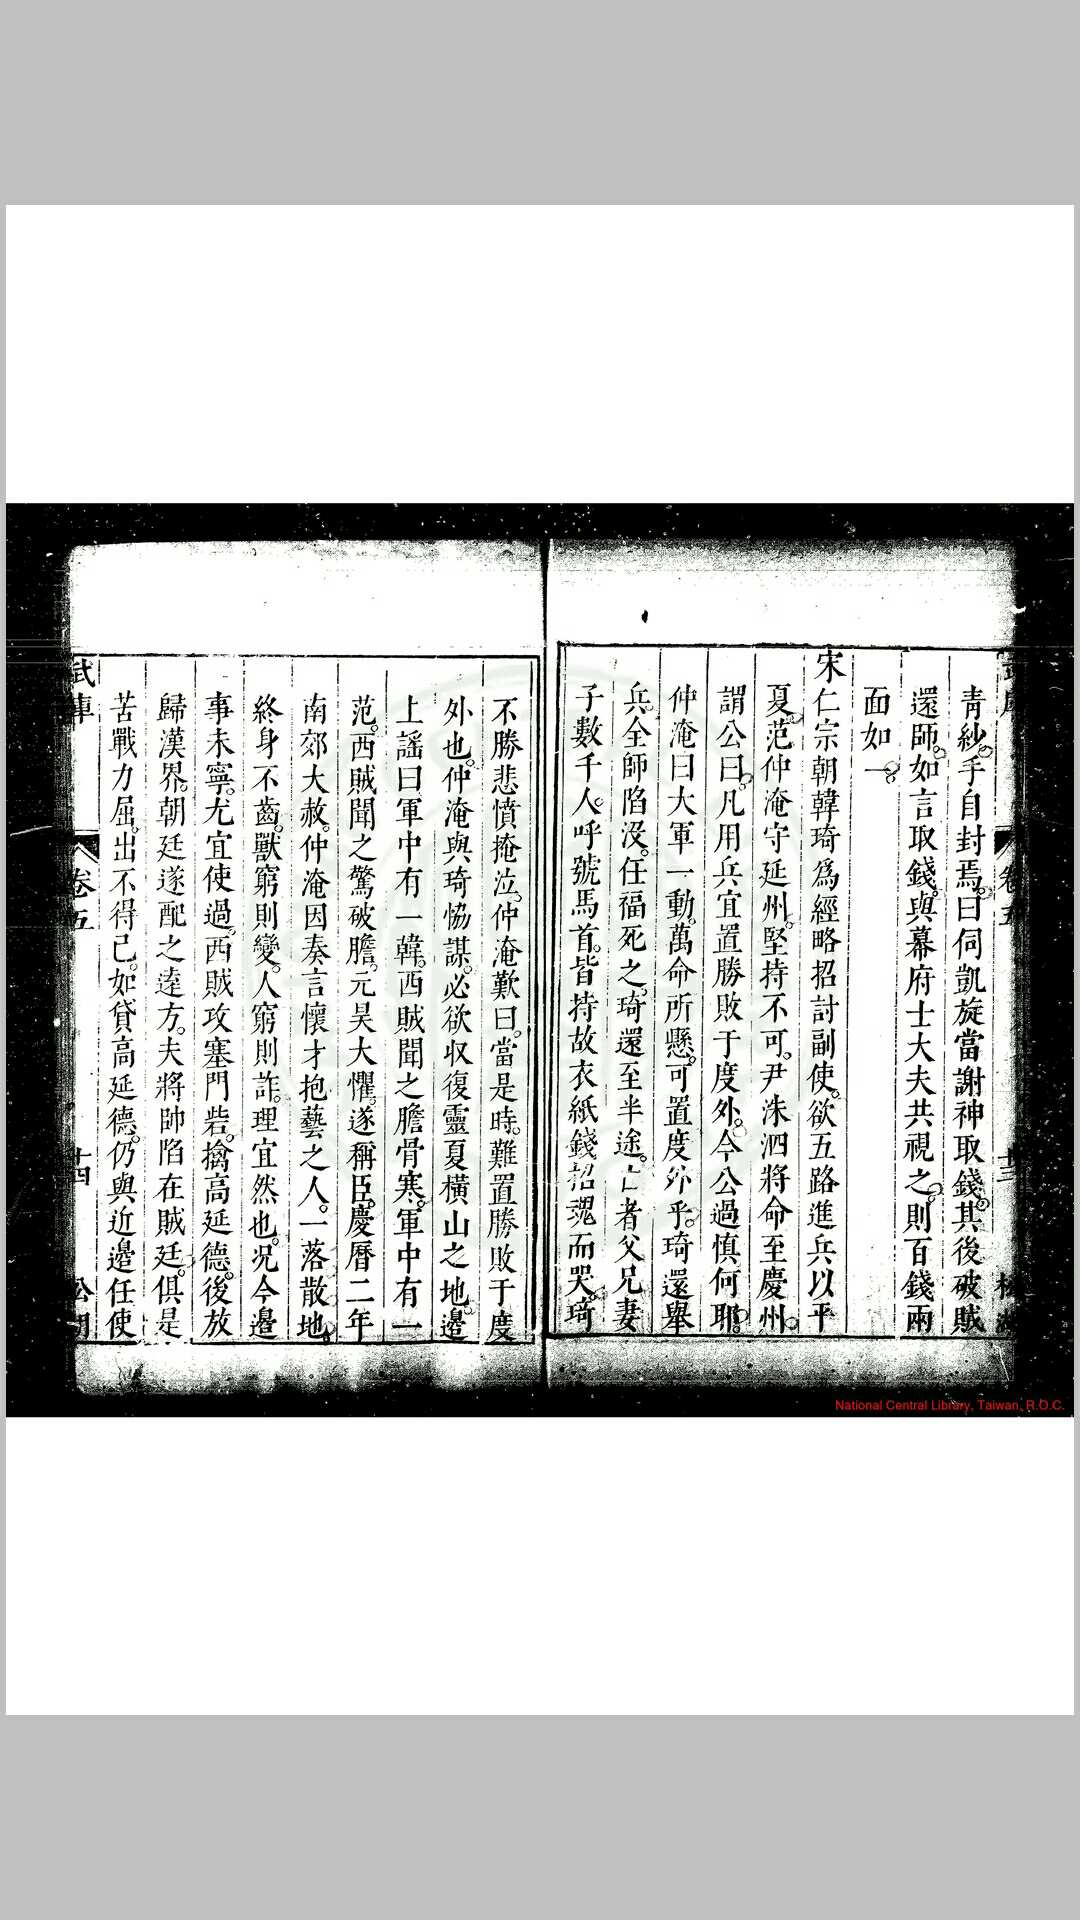 青紗。手自封焉。曰伺凱旋當謝神取錢。其後破賊
還師。如言取錢。與幕府士大夫共視之。則百錢兩
面如一。
宋仁宗朝韓琦爲經略招討副使。欲五路進兵以平
夏。范仲淹守延州。堅持不可。尹洙泗將命至慶州。
謂公曰。凡用兵宜置勝敗于度外。今公過慎何耶。
仲淹曰大軍一動。萬命所懸。可置度外乎。琦還舉
兵。全師陷沒。任福死之。琦還至半途。亡者父兄妻
子數千人。呼號馬首。皆持故衣紙錢招魂而哭。琦
不勝悲憤掩泣。仲淹歎曰。當是時。難置勝敗于度
外也。仲淹與琦恊謀。必欲収復靈夏橫山之地。邉
上謡曰軍中有一韓。西賊聞之膽骨寒。軍中有一
范。西賊聞之驚破膽。元昊大懼。遂稱臣。慶曆二年
南郊大赦。仲淹因奏言懷才抱藝之人。一落散地。
終身不齒。獸窮則變。人窮則詐。理宜然也。况今邉
事未寧。尤宜使過。西賊攻塞門砦。擒高延德。後放
歸漢界。朝廷遂配之逺方。夫將帥陷在賊廷。俱是
苦戰力屈。出不得已。如貸高延德。仍與近邉任使
武庫
卷五
十四
National Central Library, Taiwan, R.O.C.